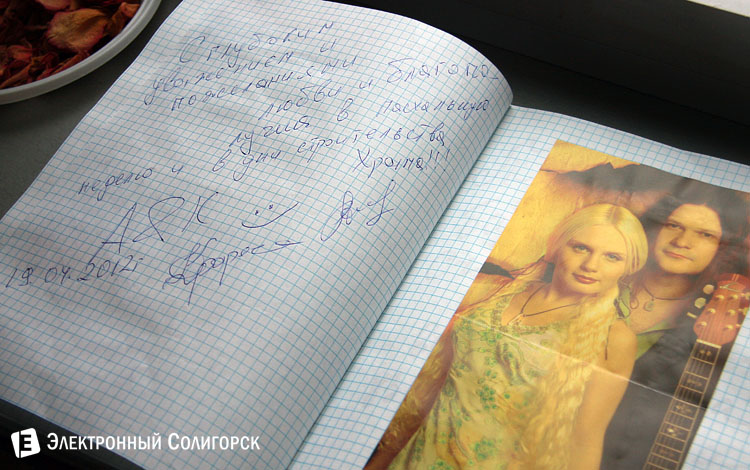 С глубоким
уважением и
пожеланиями
любви и благопо-
лучия в пасхальную
неделю и в дни строительства
Храма!!!
АЯК
19.04.2012г
Электронный Солигорск